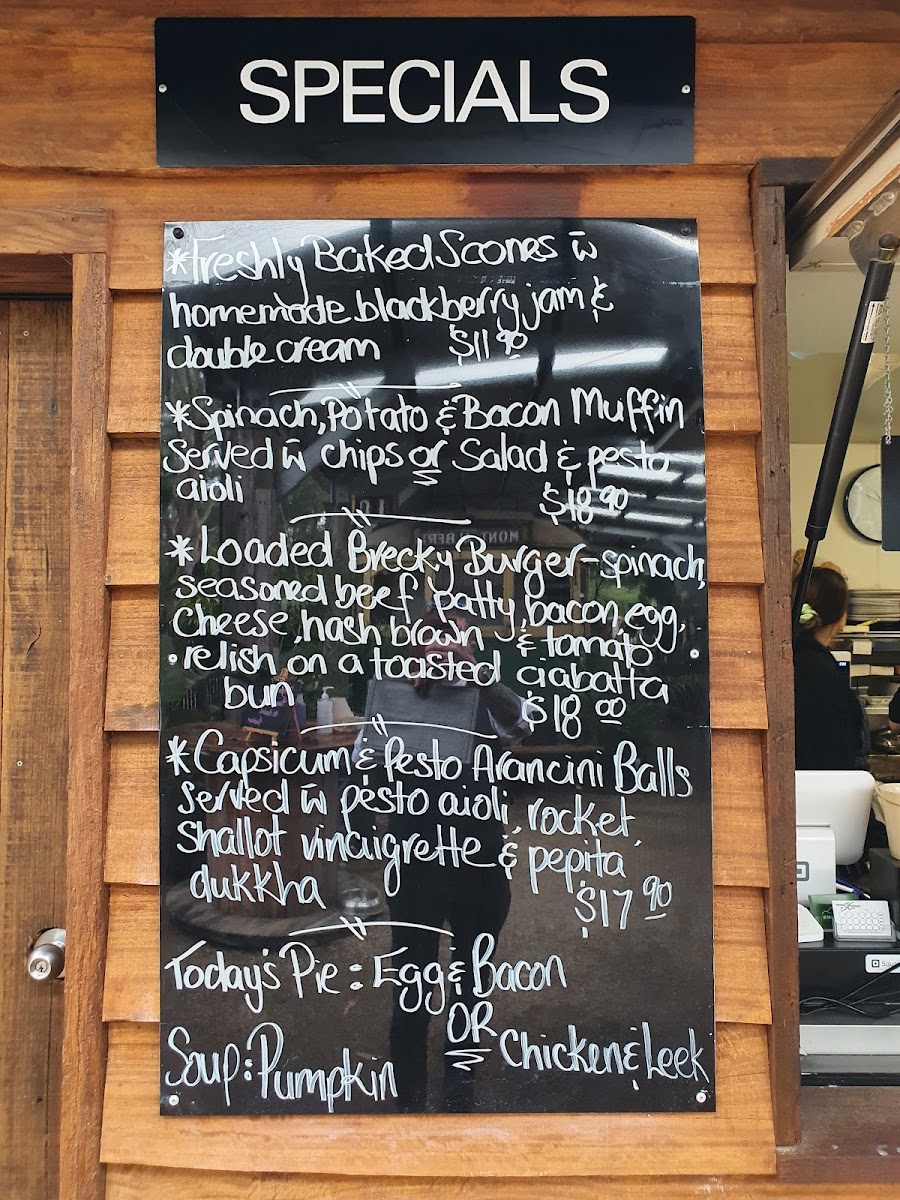 SPECIALS
*Freshly Baked Scones w̄
homemade blackberry jam &
double cream $11 90
*Spinach, Potato & Bacon Muffin
Served w̄ chips or Salad & pesto
aioli $18 90
*Loaded Brecky Burger - spinach,
seasoned beef patty, bacon, egg,
cheese, hash brown & tomato
relish on a toasted ciabatta
bun $18 00
*Capsicum & Pesto Arancini Balls
Served w̄ pesto aioli, rocket,
shallot vinaigrette & pepita
dukkha $17 90
Today's Pie: Egg & Bacon
OR
Soup: Pumpkin Chicken & Leek